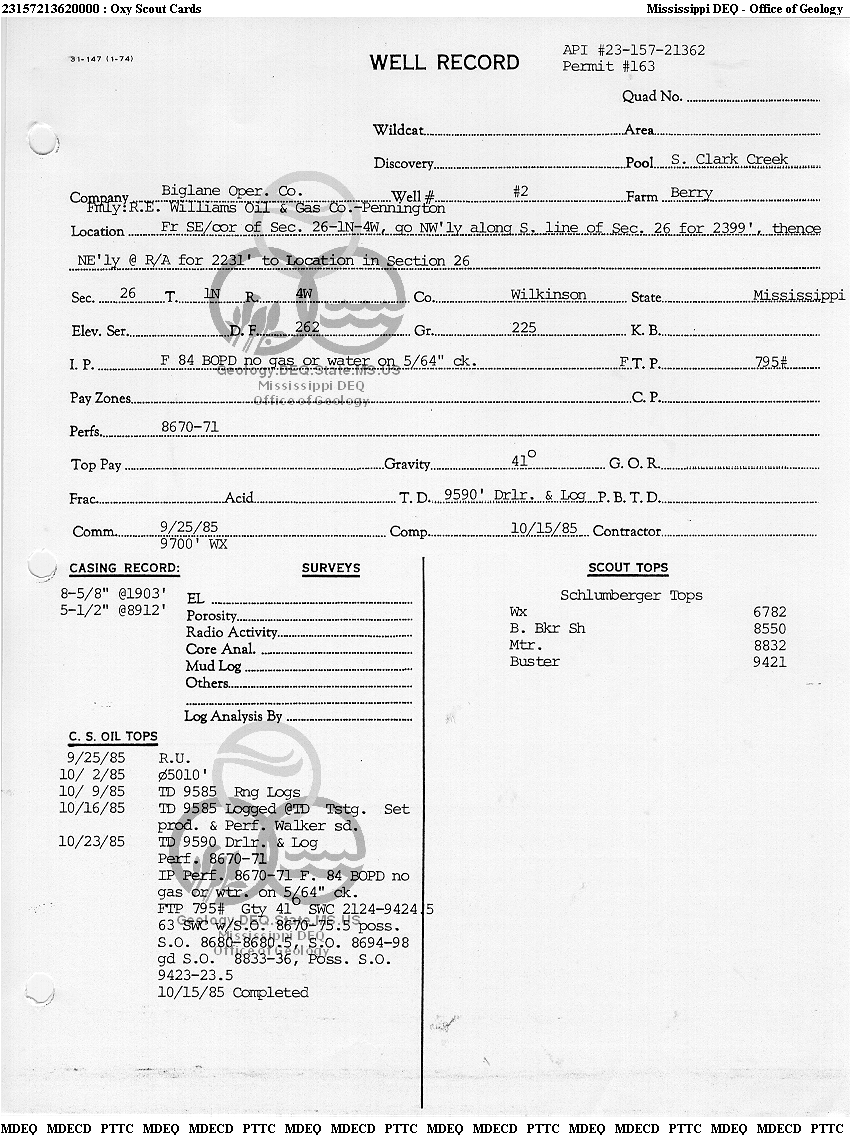 23157213620000 : Oxy Scout Cards Mississippi DEQ - Office of Geology
31-147 (1-74)
WELL RECORD
API #23-157-21362
Permit #163
Quad No.
Wildcat Area
Discovery Pool S. Clark Creek
Company Biglane Oper. Co. Well # #2 Farm Berry
Fmly:R.E. Williams Oil & Gas Co.-Pennington
Location Fr SE/cor of Sec. 26-1N-4W, go NW'ly along S. line of Sec. 26 for 2399', thence
NE'ly @ R/A for 2231' to Location in Section 26
Sec. 26 T. 1N R. 4W Co. Wilkinson State Mississippi
Elev. Ser. D. F. 262 Gr. 225 K. B.
I. P. F 84 BOPD no gas or water on 5/64" ck. F.T. P. 795#
Geology.DEQ.State.MS.US
Mississippi DEQ
Office of Geology
Pay Zones C. P.
Perfs. 8670-71
Top Pay Gravity 41° G. O. R.
Frac. Acid T. D. 9590' Drlr. & Log P. B. T. D.
Comm. 9/25/85 Comp. 10/15/85 Contractor
9700' WX
CASING RECORD: SURVEYS SCOUT TOPS
8-5/8" @1903'
5-1/2" @8912'
EL
Porosity
Radio Activity
Core Anal.
Mud Log
Others
Log Analysis By
Schlumberger Tops
Wx 6782
B. Bkr Sh 8550
Mtr. 8832
Buster 9421
C. S. OIL TOPS
9/25/85 R.U.
10/ 2/85 ø5010'
10/ 9/85 TD 9585 Rng Logs
10/16/85 TD 9585 Logged @TD Tstg. Set
prod. & Perf. Walker sd.
10/23/85 TD 9590 Drlr. & Log
Perf. 8670-71
IP Perf. 8670-71 F. 84 BOPD no
gas or wtr. on 5/64" ck.
FTP 795# Gty 41° SWC 2124-9424.5
63 SWC w/S.O. 8670-75.5 poss.
S.O. 8680-8680.5, S.O. 8694-98
gd S.O. 8833-36, Poss. S.O.
9423-23.5
10/15/85 Completed
Geology.DEQ.State.MS.US
Mississippi DEQ
Office of Geology
MDEQ MDECD PTTC MDEQ MDECD PTTC MDEQ MDECD PTTC MDEQ MDECD PTTC MDEQ MDECD PTTC MDEQ MDECD PTTC